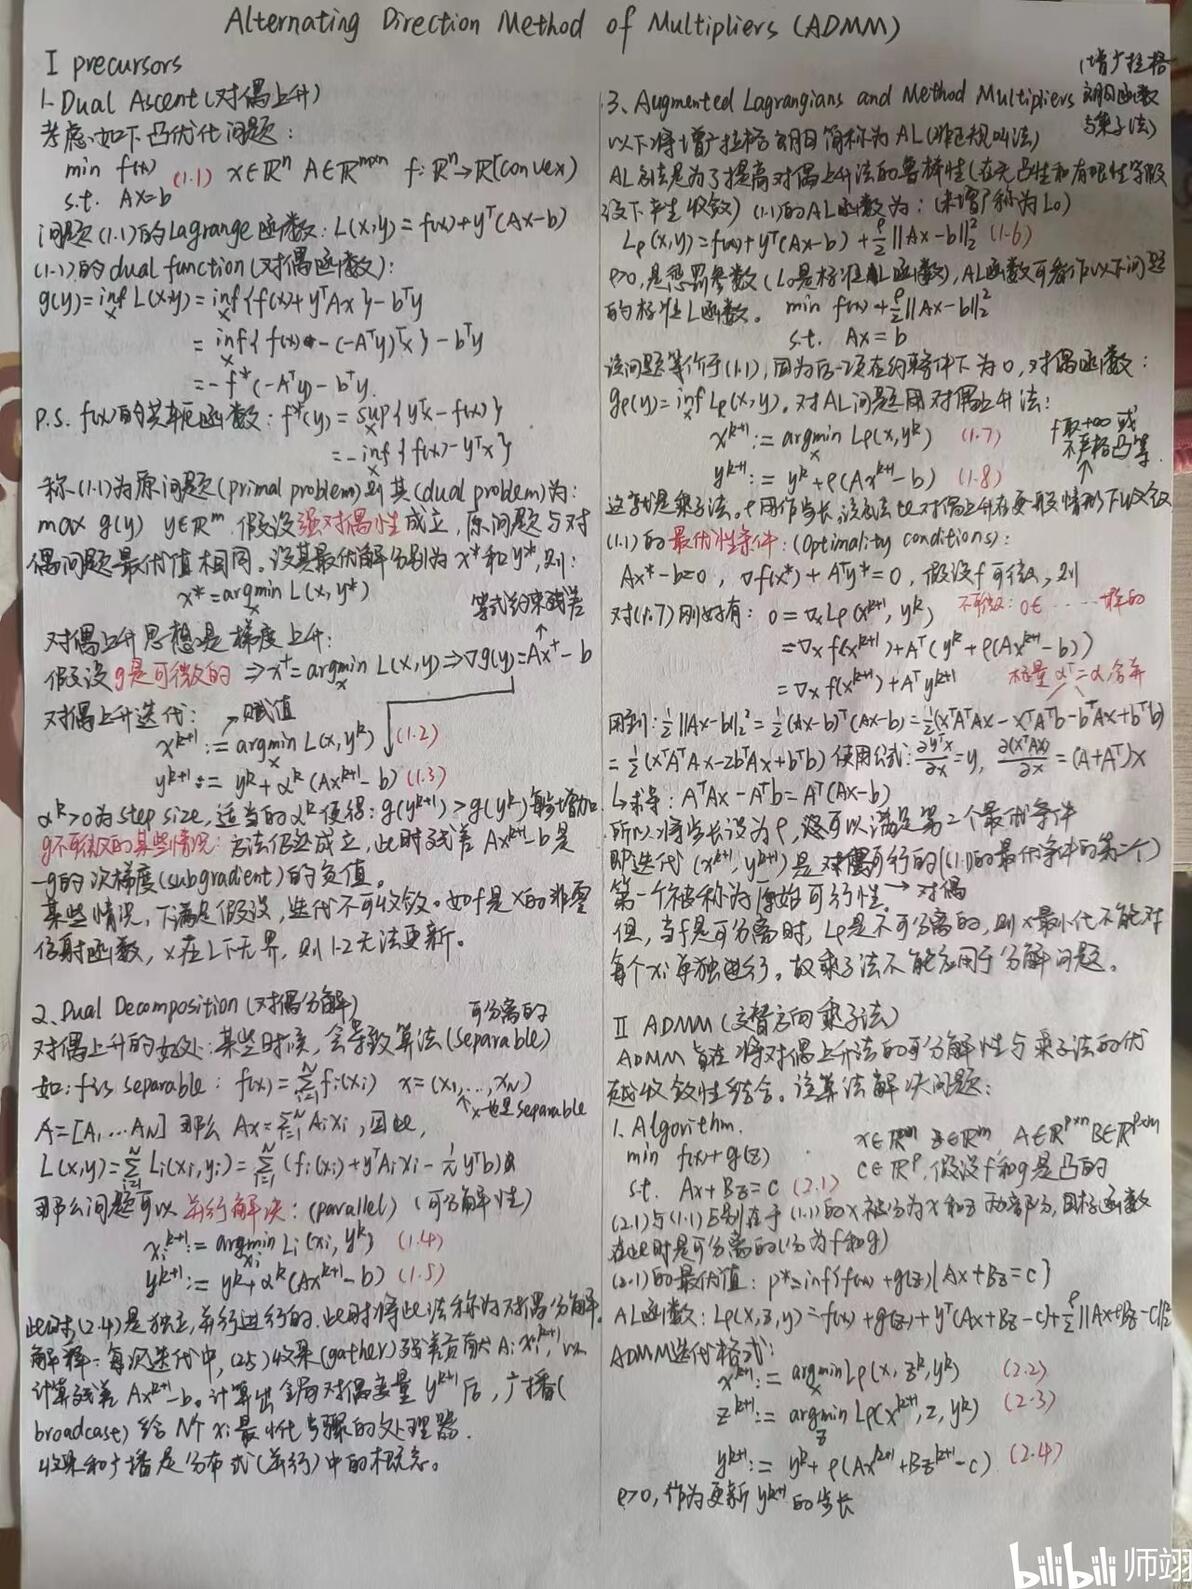 Alternating Direction Method of Multipliers (ADMM)
I precursors
1. Dual Ascent (对偶上升)
考虑如下凸优化问题:
min f(x)
s.t. Ax=b (1.1) x∈ℝⁿ A∈ℝᵐˣⁿ f:ℝⁿ→ℝ(convex)
问题(1.1)的Lagrange函数: L(x,y)=f(x)+yᵀ(Ax-b)
(1.1)的dual function(对偶函数):
g(y)=inf_x L(x,y)=inf_x{f(x)+yᵀAx}-bᵀy
=inf_x{f(x)-(-Aᵀy)ᵀx}-bᵀy
=-f*(-Aᵀy)-bᵀy.
P.S. f(x)的共轭函数: f*(y)=sup_x{yᵀx-f(x)}
=-inf_x{f(x)-yᵀx}
称(1.1)为原问题(primal problem)则其(dual problem)为:
max g(y) y∈ℝᵐ. 假设强对偶性成立, 原问题与对
偶问题最优值相同。设其最优解分别为x*和y*,则:
x*=argmin_x L(x,y*)
等式约束残差
对偶上升思想是梯度上升:
假设g是可微的 ⇒x⁺=argmin_x L(x,y)⇒∇g(y)=Ax⁺-b
对偶上升迭代: 赋值
xᵏ⁺¹:=argmin_x L(x,yᵏ) (1.2)
yᵏ⁺¹:=yᵏ+αᵏ(Axᵏ⁺¹-b) (1.3)
αᵏ>0为step size, 适当的αᵏ使得: g(yᵏ⁺¹)>g(yᵏ)每步增加.
g不可微的某些情况: 方法仍然成立, 此时残差Axᵏ⁺¹-b是
-g的次梯度(subgradient)的负值。
某些情况, 不满足假设, 迭代不可收敛。如f是x的非零
仿射函数, x在L下无界, 则1.2无法更新。
2. Dual Decomposition (对偶分解) 可分离的
对偶上升的好处: 某些时候, 会导致算法(separable)
如: f is separable: f(x)=∑ᵢ₌₁ᴺfᵢ(xᵢ) x=(x₁,...,x_N)
x也是separable
A=[A₁...A_N] 那么 Ax=∑ᵢ₌₁ᴺAᵢxᵢ, 因此,
L(x,y)=∑ᵢ₌₁ᴺLᵢ(xᵢ,yᵢ)=∑ᵢ₌₁ᴺ(fᵢ(xᵢ)+yᵀAᵢxᵢ-1/N yᵀb)
那么问题可以并行解决: (parallel) (可分解性)
xᵢᵏ⁺¹:=argmin_xᵢ Lᵢ(xᵢ,yᵏ) (1.4)
yᵏ⁺¹:=yᵏ+αᵏ(Axᵏ⁺¹-b) (1.5)
此时(2.4)是独立,并行进行的. 此时将此法称为对偶分解.
解释: 每次迭代中, (2.5)收集(gather)残差贡献Aᵢxᵢᵏ⁺¹, 以
计算残差Axᵏ⁺¹-b。计算出全局对偶变量yᵏ⁺¹后, 广播(
broadcase)给N个xᵢ最小化步骤的处理器.
收集和广播是分布式(并行)中的概念。
3. Augmented Lagrangians and Method Multipliers (增广拉格
朗日函数
与乘子法)
以下将增广拉格朗日简称为AL(非正规叫法)
AL方法是为了提高对偶上升法的鲁棒性(在无凸性和有限性等假
设下产生收敛) (1.1)的AL函数为: (未增广称为L₀)
Lρ(x,y)=f(x)+yᵀ(Ax-b)+ρ/2||Ax-b||₂² (1.6)
ρ>0,是惩罚参数(L₀是标准L函数),AL函数可看作以下问题
的标准L函数。 min f(x)+ρ/2||Ax-b||₂²
s.t. Ax=b
该问题等价于(1.1), 因为后一项在约束条件下为0, 对偶函数:
gρ(y)=inf_x Lρ(x,y)。对AL问题用对偶上升法:
xᵏ⁺¹:=argmin_x Lρ(x,yᵏ) (1.7) f取+∞或
不严格凸等.
yᵏ⁺¹:=yᵏ+ρ(Axᵏ⁺¹-b) (1.8)
这就是乘子法。ρ用作步长, 该方法比对偶上升在更一般情形下收敛
(1.1)的最优性条件: (Optimality conditions):
Ax*-b=0, ∇f(x*)+Aᵀy*=0, 假设f可微, 则
对(1.7)刚好有: 0=∇ₓLρ(xᵏ⁺¹,yᵏ) 不可微: 0∈ ······一样的
=∇ₓf(xᵏ⁺¹)+Aᵀ(yᵏ+ρ(Axᵏ⁺¹-b))
=∇ₓf(xᵏ⁺¹)+Aᵀyᵏ⁺¹ 标量αᵀ=α,合并
用到: ½||Ax-b||₂²=½(Ax-b)ᵀ(Ax-b)=½(xᵀAᵀAx-xᵀAᵀb-bᵀAx+bᵀb)
=½(xᵀAᵀAx-2bᵀAx+bᵀb) 使用公式: ∂yᵀx/∂x=y, ∂(xᵀAx)/∂x=(A+Aᵀ)x
↳求导: AᵀAx-Aᵀb=Aᵀ(Ax-b)
所以将步长设为ρ, 总可以满足第二个最优条件
即迭代(xᵏ⁺¹,yᵏ⁺¹)是对偶可行的((1.1)的最优条件的第二个)
第一个被称为原始可行性. → 对偶
但, 当f是可分离时, Lρ是不可分离的, 则x最小化不能对
每个xᵢ单独进行。故乘子法不能应用于分解问题。
II ADMM (交替方向乘子法)
ADMM旨在将对偶上升法的可分解性与乘子法的优
越收敛性结合。该算法解决问题:
1. Algorithm. x∈ℝⁿ z∈ℝᵐ, A∈ℝᵖˣⁿ B∈ℝᵖˣᵐ
min f(x)+g(z) c∈ℝᵖ. 假设f和g是凸的
s.t. Ax+Bz=c (2.1)
(2.1)与(1.1)区别在于(1.1)的x被分为x和z两部分, 目标函数
在此时是可分离的(分为f和g)
(2.1)的最优值: p*=inf{f(x)+g(z)|Ax+Bz=c}
AL函数: Lρ(x,z,y)=f(x)+g(z)+yᵀ(Ax+Bz-c)+ρ/2||Ax+Bz-c||₂²
ADMM迭代格式:
xᵏ⁺¹:=argmin_x Lρ(x,zᵏ,yᵏ) (2.2)
zᵏ⁺¹:=argmin_z Lρ(xᵏ⁺¹,z,yᵏ) (2.3)
yᵏ⁺¹:=yᵏ+ρ(Axᵏ⁺¹+Bzᵏ⁺¹-c) (2.4)
ρ>0, 作为更新yᵏ⁺¹的步长
bilibili 师翊